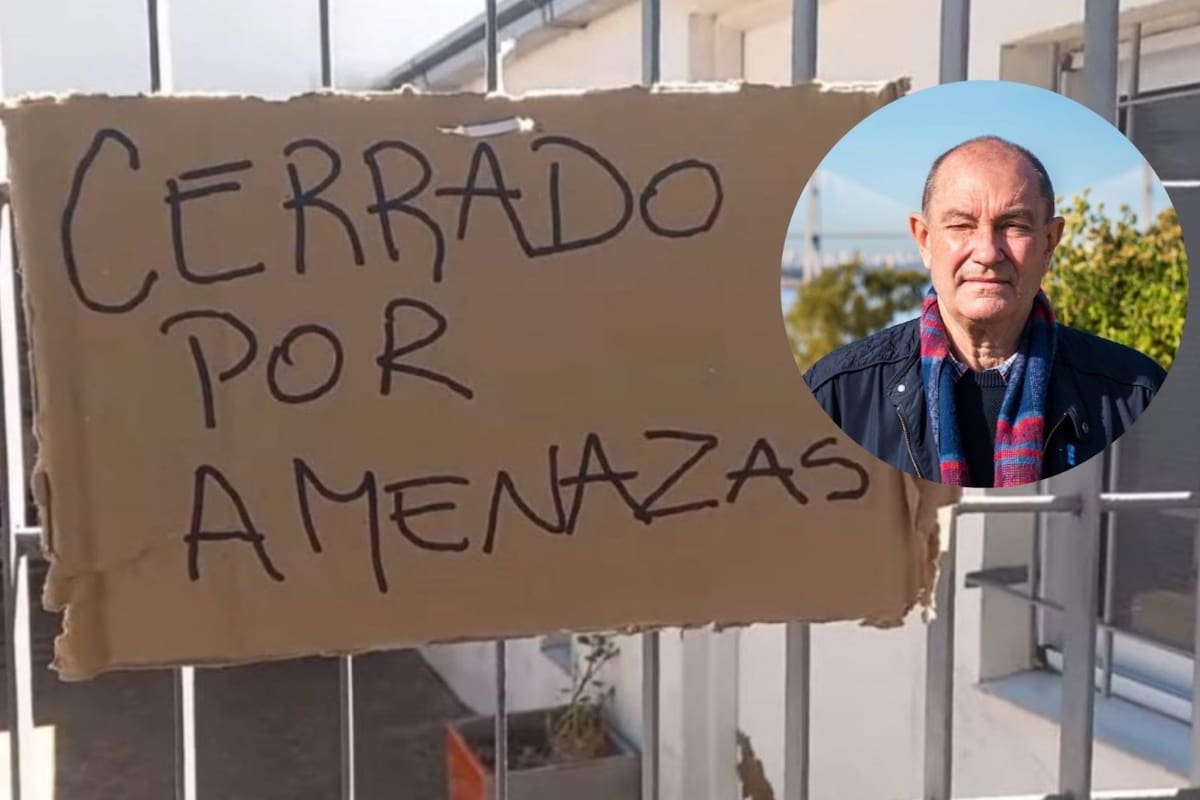 CERRADO
POR
AMENAZAS